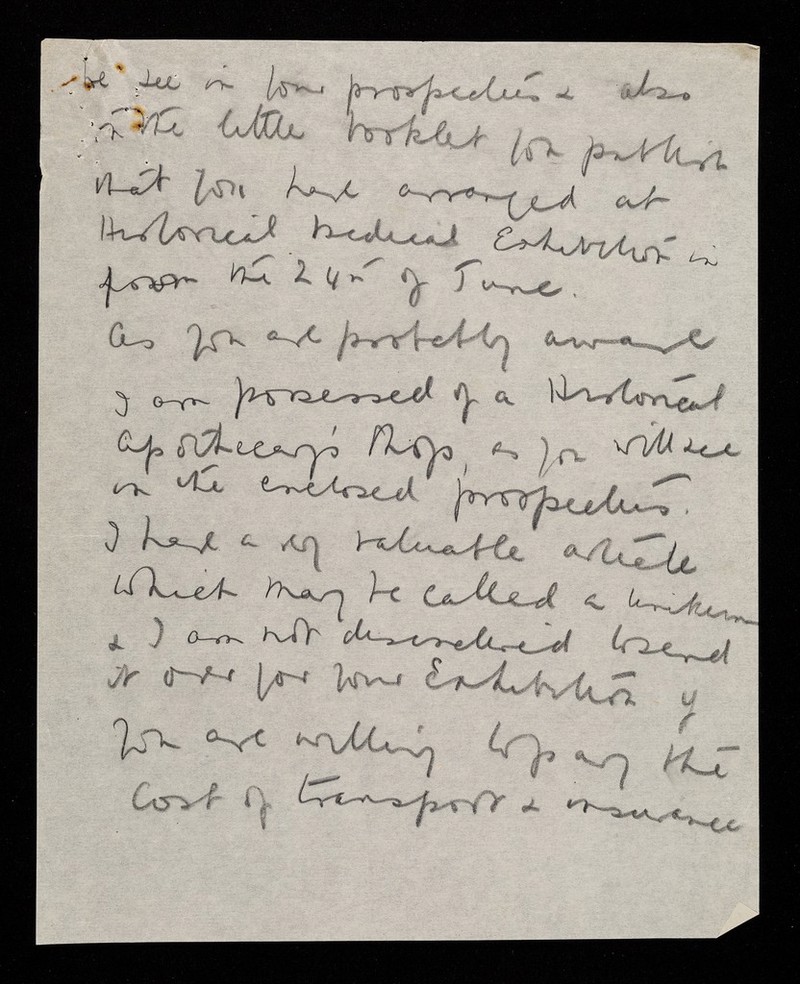 We see in your prospectus & also
in the little booklet you publish
that you have arranged at
Historical Medical Exhibition in
from the 24th of June.
As you are probably aware
I am possessed of a Historical
Apothecary's Shop, as you will see
in the enclosed prospectus.
I have a very valuable article
which may be called a Unikum
& I am not disinclined to send
it over for your Exhibition if
you are willing to pay the
cost of transport & insurance